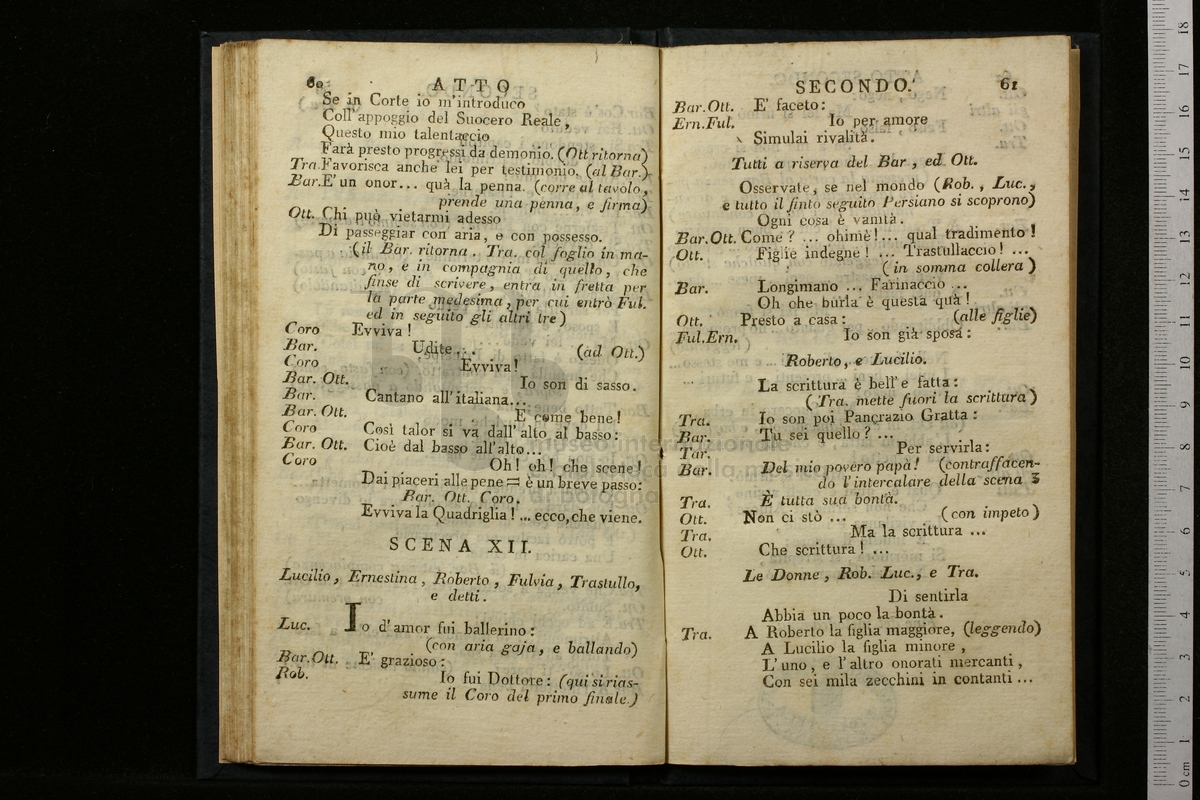 60 ATTO
Se in Corte io m'introduco
Coll'appoggio del Suocero Reale,
Questo mio talentaccio
Farà presto progressi da demonio. (Ott ritorna)
Tra. Favorisca anche lei per testimonio. (al Bar.)
Bar. E' un onor... quà la penna. (corre al tavolo,
prende una penna, e firma)
Ott. Chi può vietarmi adesso
Di passeggiar con aria, e con possesso.
(il Bar. ritorna. Tra. col foglio in ma-
no, e in compagnia di quello, che
finse di scrivere, entra in fretta per
la parte medesima, per cui entrò Ful.
ed in seguito gli altri tre)
Coro Evviva!
Bar. Udite... (ad Ott.)
Coro Evviva!
Bar. Ott. Io son di sasso.
Bar. Cantano all'italiana...
Bar. Ott. E come bene!
Coro Così talor si va dall'alto al basso:
Bar. Ott. Cioè dal basso all'alto...
Coro Oh! oh! che scene!
Dai piaceri alle pene = è un breve passo:
Bar. Ott. Coro.
Evviva la Quadriglia!... ecco, che viene.
SCENA XII.
Lucilio, Ernestina, Roberto, Fulvia, Trastullo,
e detti.
Luc. Io d'amor fui ballerino:
(con aria gaja, e ballando)
Bar. Ott. E' grazioso:
Rob. Io fui Dottore: (qui si rias-
sume il Coro del primo finale.)
SECONDO. 61
Bar. Ott. E' faceto:
Ern. Ful. Io per amore
Simulai rivalità.
Tutti a riserva del Bar, ed Ott.
Osservate, se nel mondo (Rob., Luc.,
e tutto il finto seguito Persiano si scoprono)
Ogni cosa è vanità.
Bar. Ott. Come? ... ohimè!... qual tradimento!
Ott. Figlie indegne! ... Trastullaccio! ...
(in somma collera)
Bar. Longimano ... Farinaccio ...
Oh che burla è questa quà!
Ott. Presto a casa: (alle figlie)
Ful. Ern. Io son già sposa:
Roberto, e Lucilio.
La scrittura è bell'e fatta:
(Tra. mette fuori la scrittura)
Tra. Io son poi Pancrazio Gratta:
Bar. Tu sei quello? ...
Tar. Per servirla:
Bar. Del mio povero papà! (contraffacen-
do l'intercalare della scena 3
Tra. È tutta sua bontà.
Ott. Non ci stò ... (con impeto)
Tra. Ma la scrittura ...
Ott. Che scrittura! ...
Le Donne, Rob. Luc., e Tra.
Di sentirla
Abbia un poco la bontà.
Tra. A Roberto la figlia maggiore, (leggendo)
A Lucilio la figlia minore,
L'uno, e l'altro onorati mercanti,
Con sei mila zecchini in contanti...